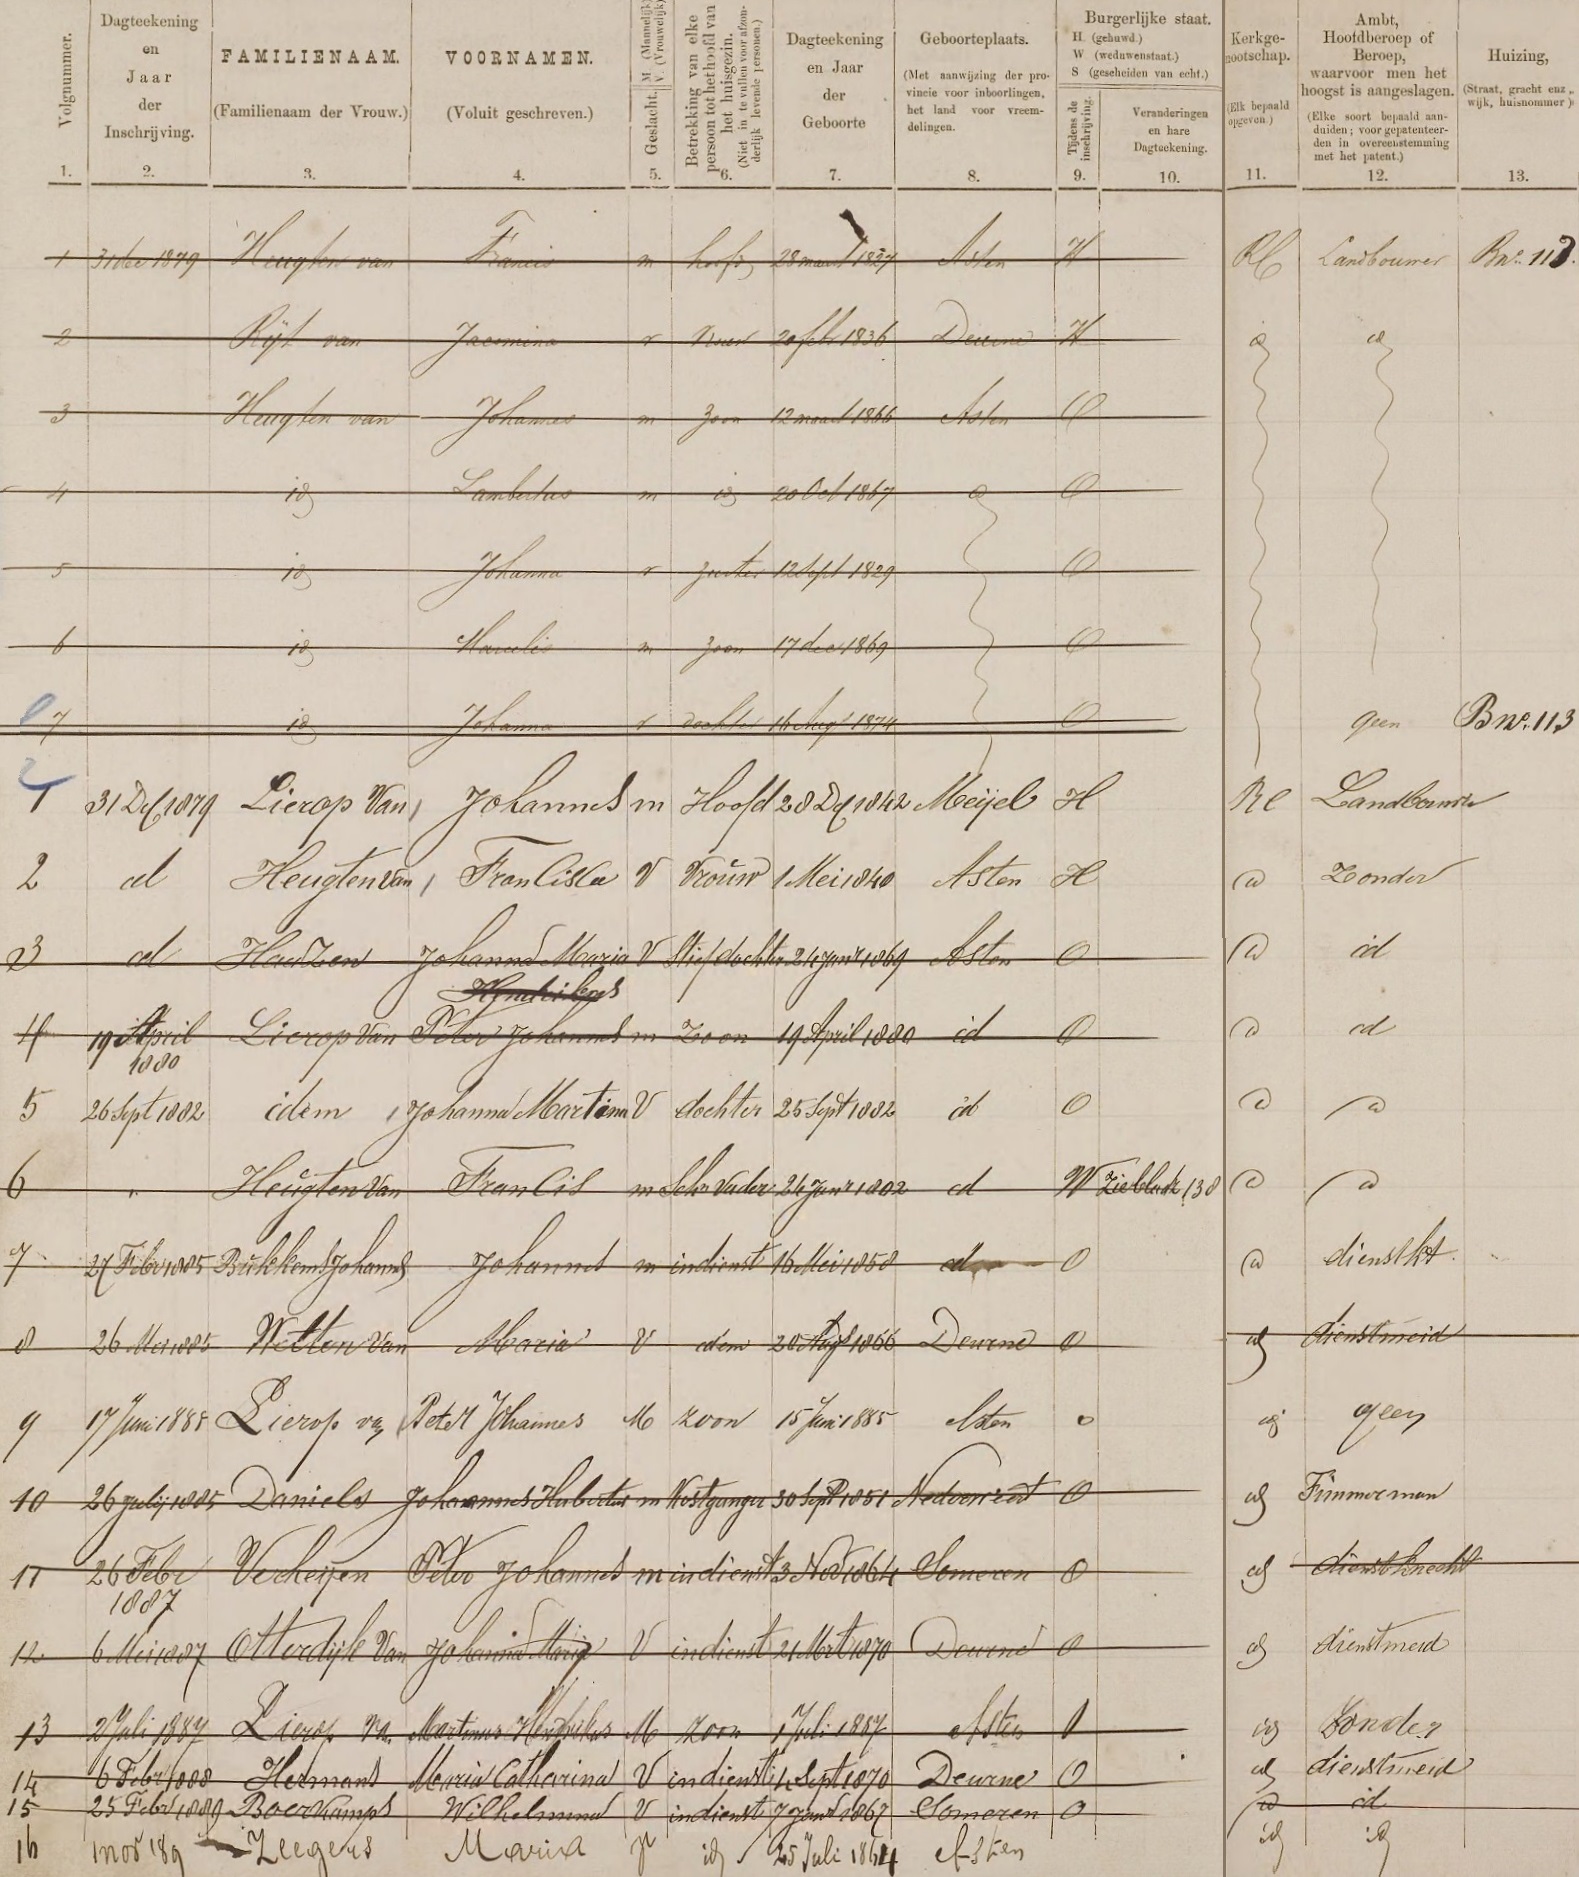 Volgnummer. 1.
Dagteekening en Jaar der Inschrijving. 2.
FAMILIENAAM. (Familienaam der Vrouw.) 3.
VOORNAMEN. (Voluit geschreven.) 4.
Geslacht. M (Mannelijk) V. (Vrouwelijk) 5.
Betrekking van elke persoon tot het hoofd van het huisgezin. (Niet in te vullen voor afzonderlijk levende personen.) 6.
Dagteekening en Jaar der Geboorte 7.
Geboorteplaats. (Met aanwijzing der provincie voor inboorlingen, het land voor vreemdelingen. 8.
Burgerlijke staat. H (gehuwd.) W (weduwenstaat.) S (gescheiden van echt.)
Tijdens de inschrijving. 9.
Veranderingen en hare Dagteekening. 10.
Kerkgenootschap. (Elk bepaald opgeven.) 11.
Ambt, Hoofdberoep of Beroep, waarvoor men het hoogst is aangeslagen. (Elke soort bepaald aanduiden; voor gepatenteerden in overeenstemming met het patent.) 12.
Huizing, (Straat, gracht enz., wijk, huisnommer) 13.
1 31 dec 1879 Heugten van Francis m hoofd 28 maart 1827 Asten H RC Landbouwer Bno. 113.
2 Rijt van Jacomina v vrouw 20 febr 1836 Deurne H id id
3 Heugten van Johannes m zoon 12 maart 1866 Asten O
4 id Lambertus m id 20 Oct 1867 id O
5 id Johanna v zuster 12 Sept 1829 O
6 id Marcelis m zoon 17 dec 1869 O
7 id Johanna v dochter 16 Aug 1874 O geen Bno. 113
1 31 Dec 1879 Lierop Van Johannes m Hoofd 28 Dec 1842 Meijel H RC Landbouwer
2 id Heugten van Francisca V Vrouw 1 Mei 1840 Asten H id Zonder
3 id Johanna Maria V Stiefdochter 24 Janr 1869 Asten O id id
Hendrikus
4 19 April 1880 Lierop Van Peter Johannes m Zoon 19 April 1880 id O id id
5 26 Sept 1882 idem Johanna Martina V dochter 25 Sept 1882 id O id id
6 " Heugten Van Francis m Sch Vader 24 Janr 1802 id W id id
7 27 Febr 1885 Johannes m in dienst 16 Mei 1858 id O id dienstkt.
8 26 Mei 1885 Wetten Van Maria V idem 20 Aug 1866 Deurne O id dienstmeid
9 17 Juni 1885 Lierop van Peter Johannes M zoon 15 Juni 1885 Asten o id geen
10 26 Julij 1885 Daniels Johannes Hubertus m Kostganger 30 Sept 1851 Nederweert O id Timmerman
11 26 Febr 1887 Verheijen Peter Johannes m in dienst 3 Nov 1864 Someren O id dienstknecht
12 6 Mei 1887 Otterdijk Van Johanna Maria V in dienst 21 Mrt 1870 Deurne O id dienstmeid
13 2 Juli 1887 Lierop van Martinus Hendrikus M zoon 1 Juli 1887 Asten O id Zonder
14 6 Febr 1888 Hermans Maria Catharina V in dienst 14 Sept 1870 Deurne O id dienstmeid
15 25 Febr 1889 Boerkamps Wilhelmina V in dienst 7 Janr 1867 Someren O id id
16 1 nov 189 Zeegers Maria V id 25 Juli 1864 Asten id id